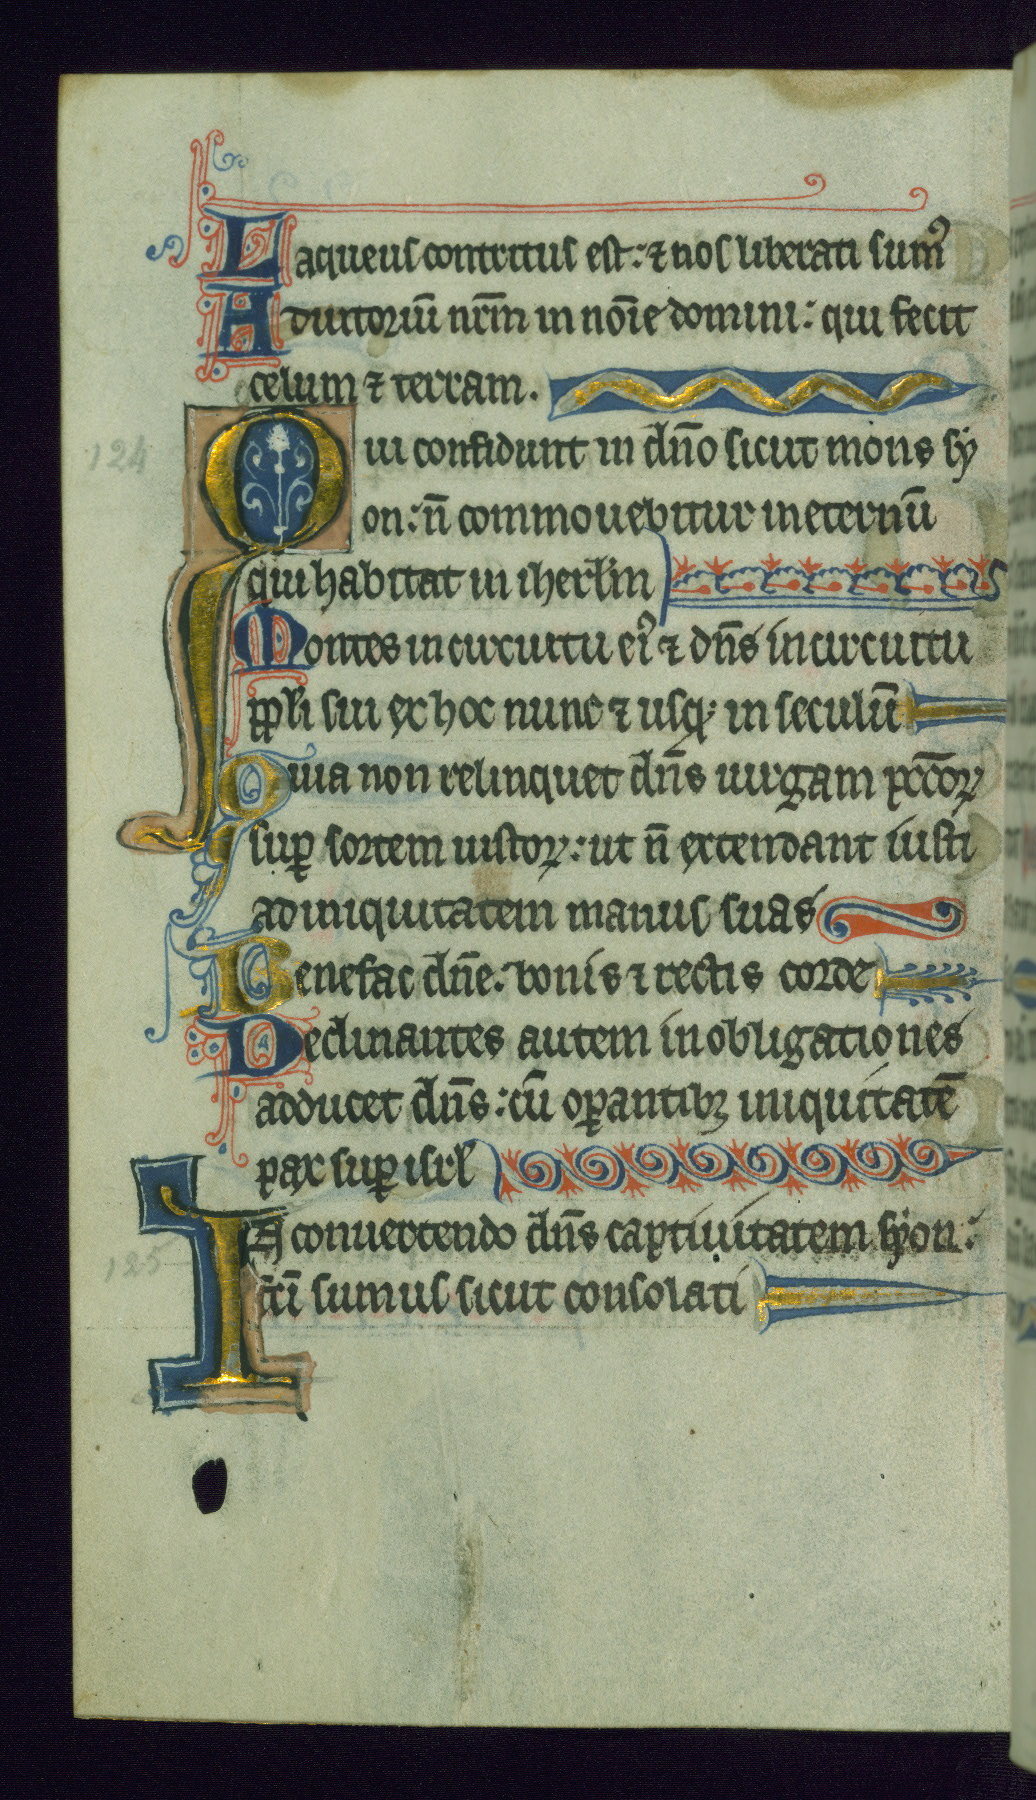 Laqueus contritus est: ⁊ nos liberati sumꝰ
Adiutoriū nr̄m in nōie domini: qui fecit
celum ⁊ terram.
124
Qui confidunt in dn̄o sicut mons sy
on: n̄ commouebitur in eternū
qui habitat in iherl̄m
Montes in circuitu eiꝰ ⁊ dn̄s in circuitu
ppl̄i sui ex hoc nunc ⁊ usqꝫ in seculū
Quia non relinquet dn̄s uirgam pc̄cōꝝ
suꝑ sortem iustoꝝ: ut n̄ extendant iusti
ad iniquitatem manus suas
Benefac dn̄e: bonis ⁊ rectis corde
Declinantes autem in obligationes
adducet dn̄s: cū oꝑantibꝫ iniquitatē
pax suꝑ isrl̄
IN conuertendo dn̄s captiuitatem syon:
125
fc̄i sumus sicut consolati